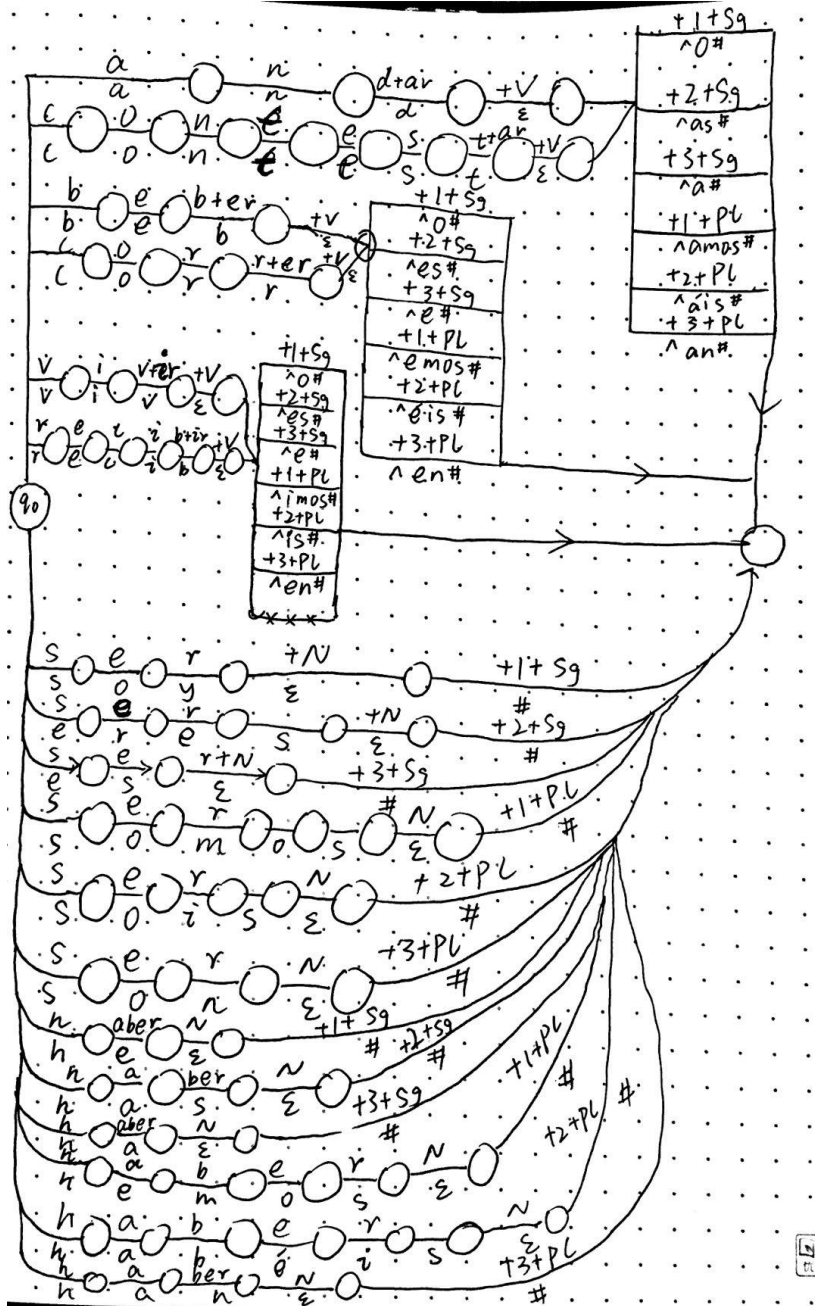 +1+Sg
^0#
+2+Sg
^as#
+3+Sg
^a#
+1+PL
^amos#
+2+PL
^áis#
+3+PL
^an#
a n d+ar +V
a n d ε
c o n t e s t+ar +V
c o n t e s t ε
b e b+er +V
b e b ε
c o r r+er +V
c o r r ε
+1+Sg
^0#
+2+Sg
^es#
+3+Sg
^e#
+1+PL
^emos#
+2+PL
^éis#
+3+PL
^en#
v i v+ir +V
v i v ε
r e c i b+ir +V
r e c i b ε
+1+Sg
^0#
+2+Sg
^es#
+3+Sg
^e#
+1+PL
^imos#
+2+PL
^is#
+3+PL
^en#
q0
s e r +N +1+Sg
s o y ε #
s e r +N +2+Sg
e r e s ε #
s e r+N +3+Sg
e s ε #
s e r N +1+PL
s o m o s ε #
s e r N +2+PL
s o i s ε #
s e r N +3+PL
s o n ε #
h aber N +1+Sg
h e ε #
h a ber N +2+Sg
h a s ε #
h aber N +3+Sg
h a ε #
h a b e r N +1+PL
h e m o s ε #
h a b e r N +2+PL
h a b é i s ε #
h a ber N +3+PL
h a n ε #